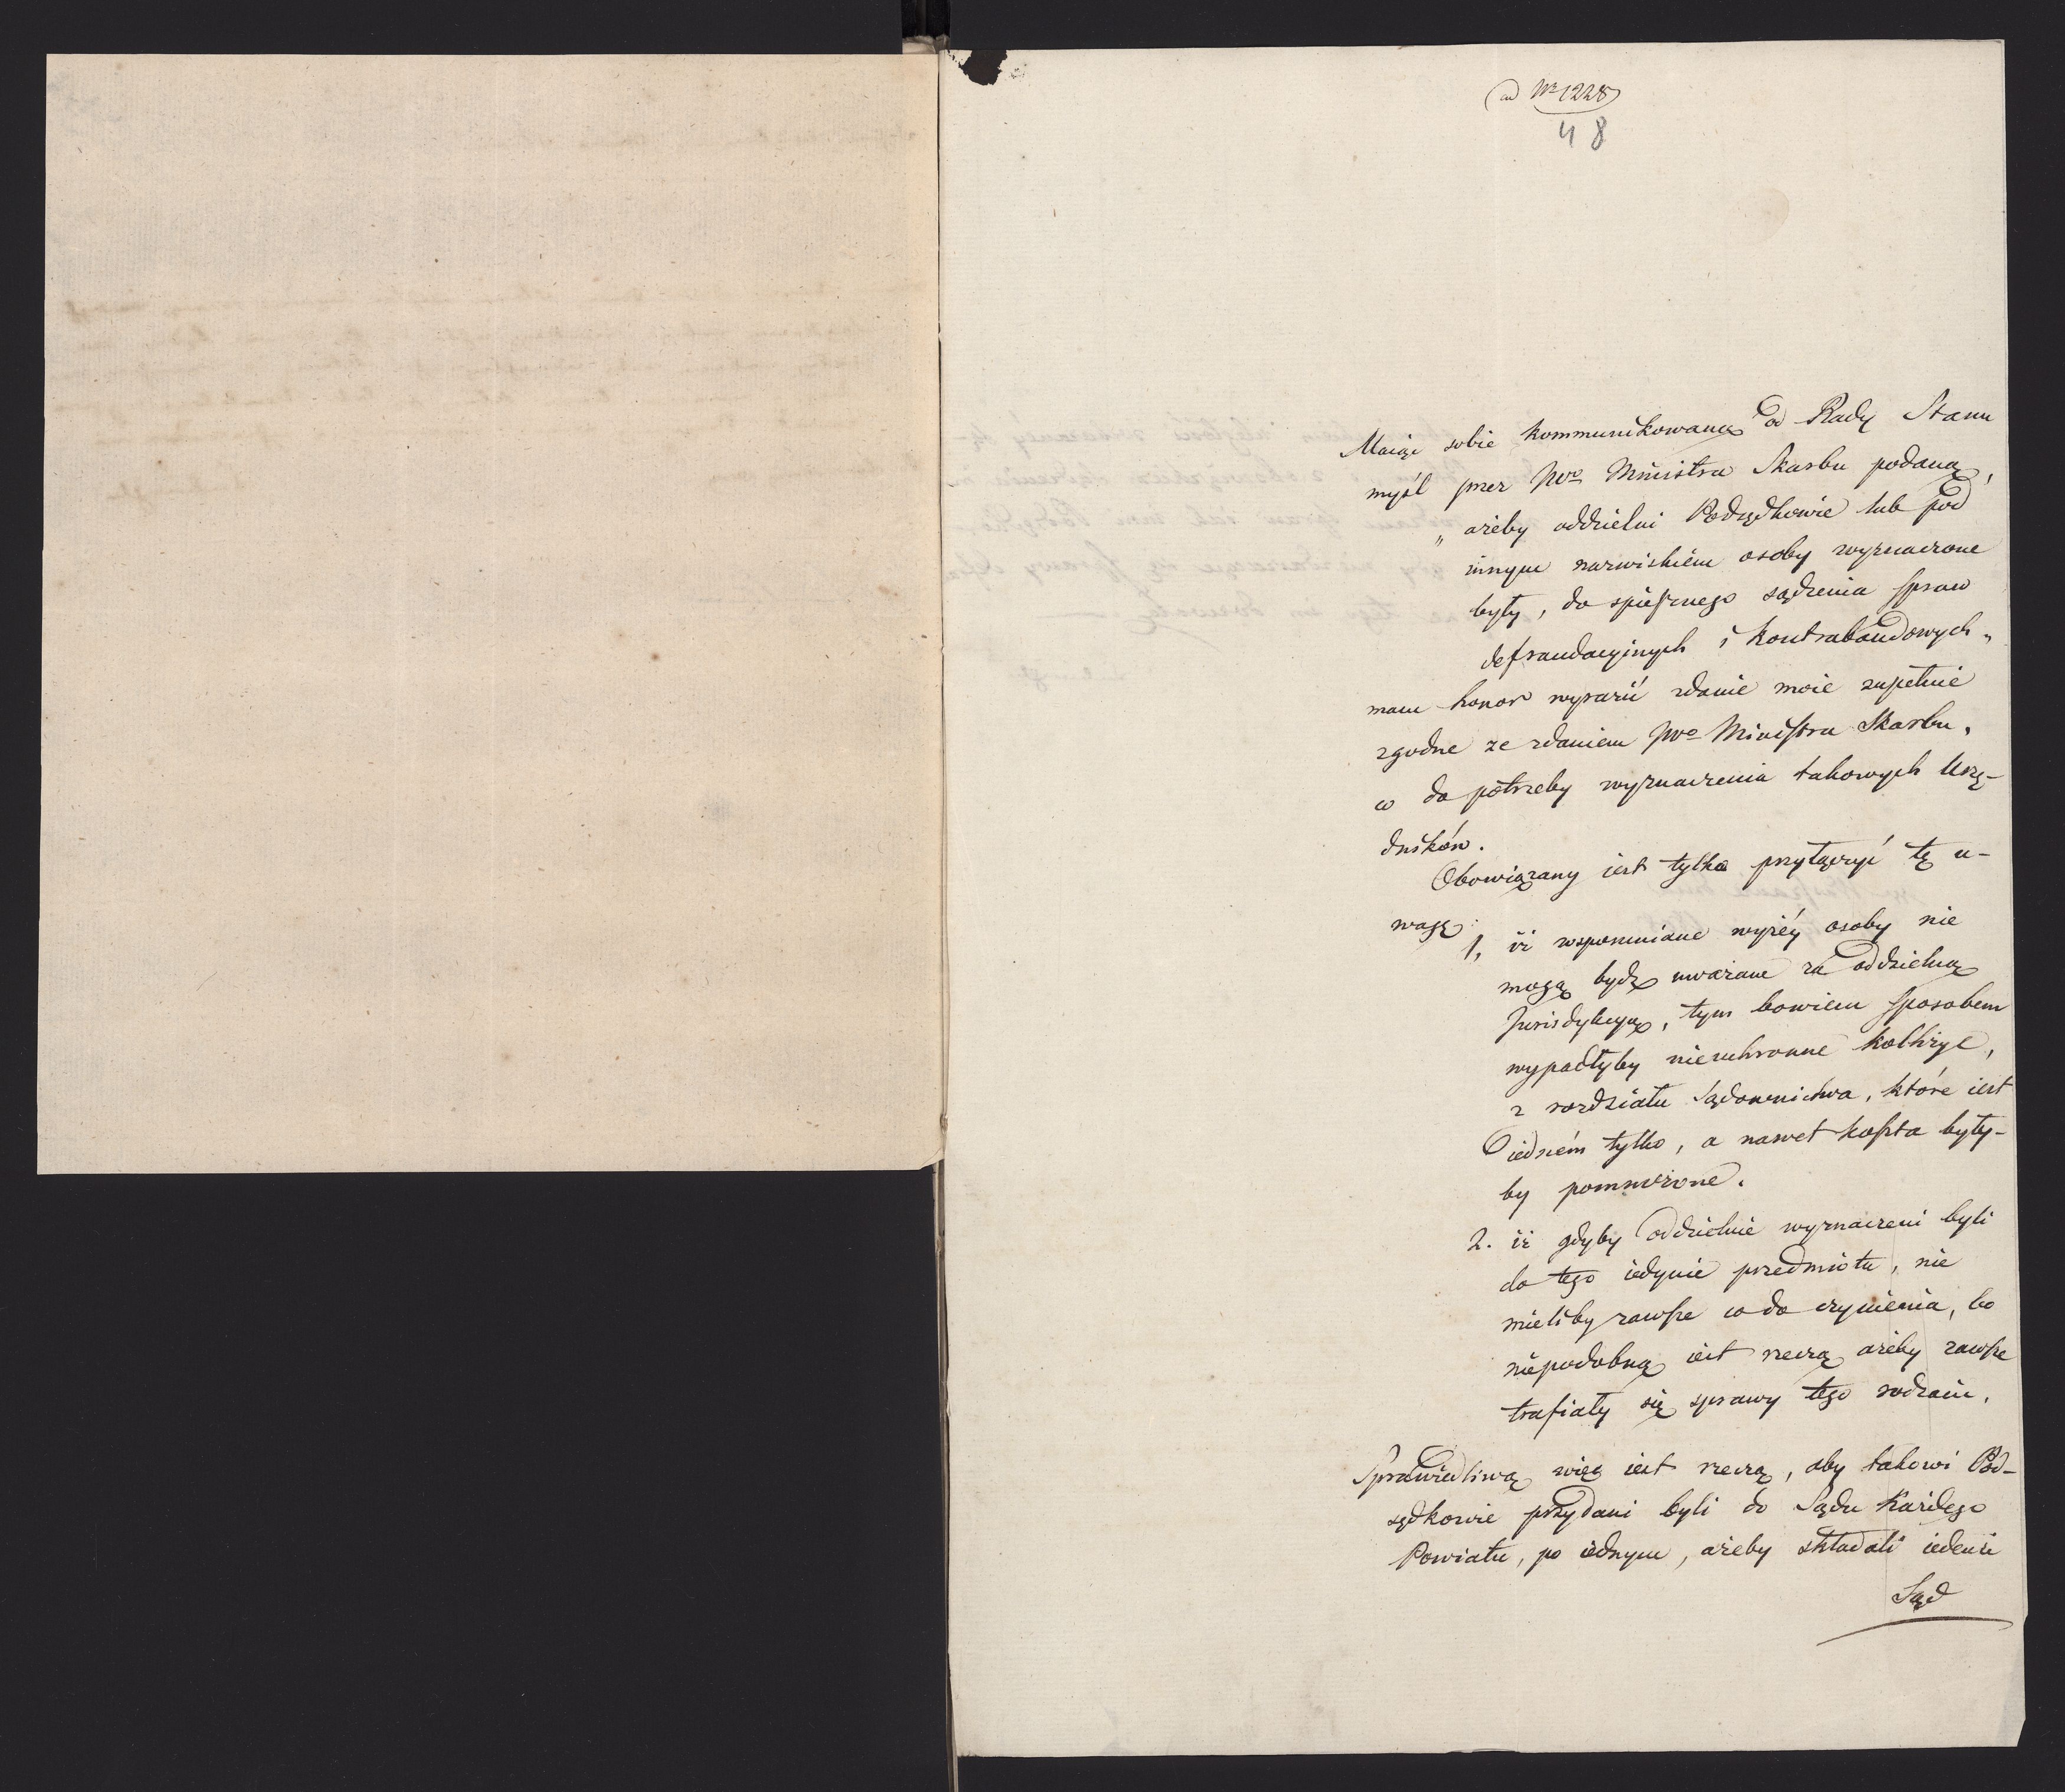 ad Nro 1228
48
Maiąc sobie kommunikowaną od Rady Stanu
myśl przez JWo Ministra Skarbu podaną,
„ażeby oddzielni Podsędkowie lub pod
innym nazwiskiem osoby wyznaczone
były, do spiesznego sądzenia spraw
defraudacyinych i kontrabandowych„
mam honor wyrazić zdanie moie zupełnie
zgodne ze zdaniem JWo Ministra Skarbu,
co do potrzeby wyznaczenia takowych Urzę-
dników.
Obowiązany iest tylko przyłączyć tę u-
wagę:
1, iż wspomniane wyżéy osoby nie
mogą bydź uważane za oddzielną
Jurisdykcyą, tym bowiem sposobem
wypadłyby nieuchronne kollizye,
z rozdziału Sądownictwa, które iest
iedném tylko, a nawet koszta były-
by pomnożone.
2. iż gdyby oddzielnie wyznaczeni byli
do tego iedynie przedmiotu, nie
mieliby zawsze co do czynienia, bo
niepodobną iest rzeczą ażeby zawsze
trafiały się sprawy tego rodzaiu.
Sprawiedliwą więc iest rzeczą, aby takowi Pod-
sędkowie przydani byli do Sądu Każdego
Powiatu, po iednym, ażeby składali ieden
Sąd